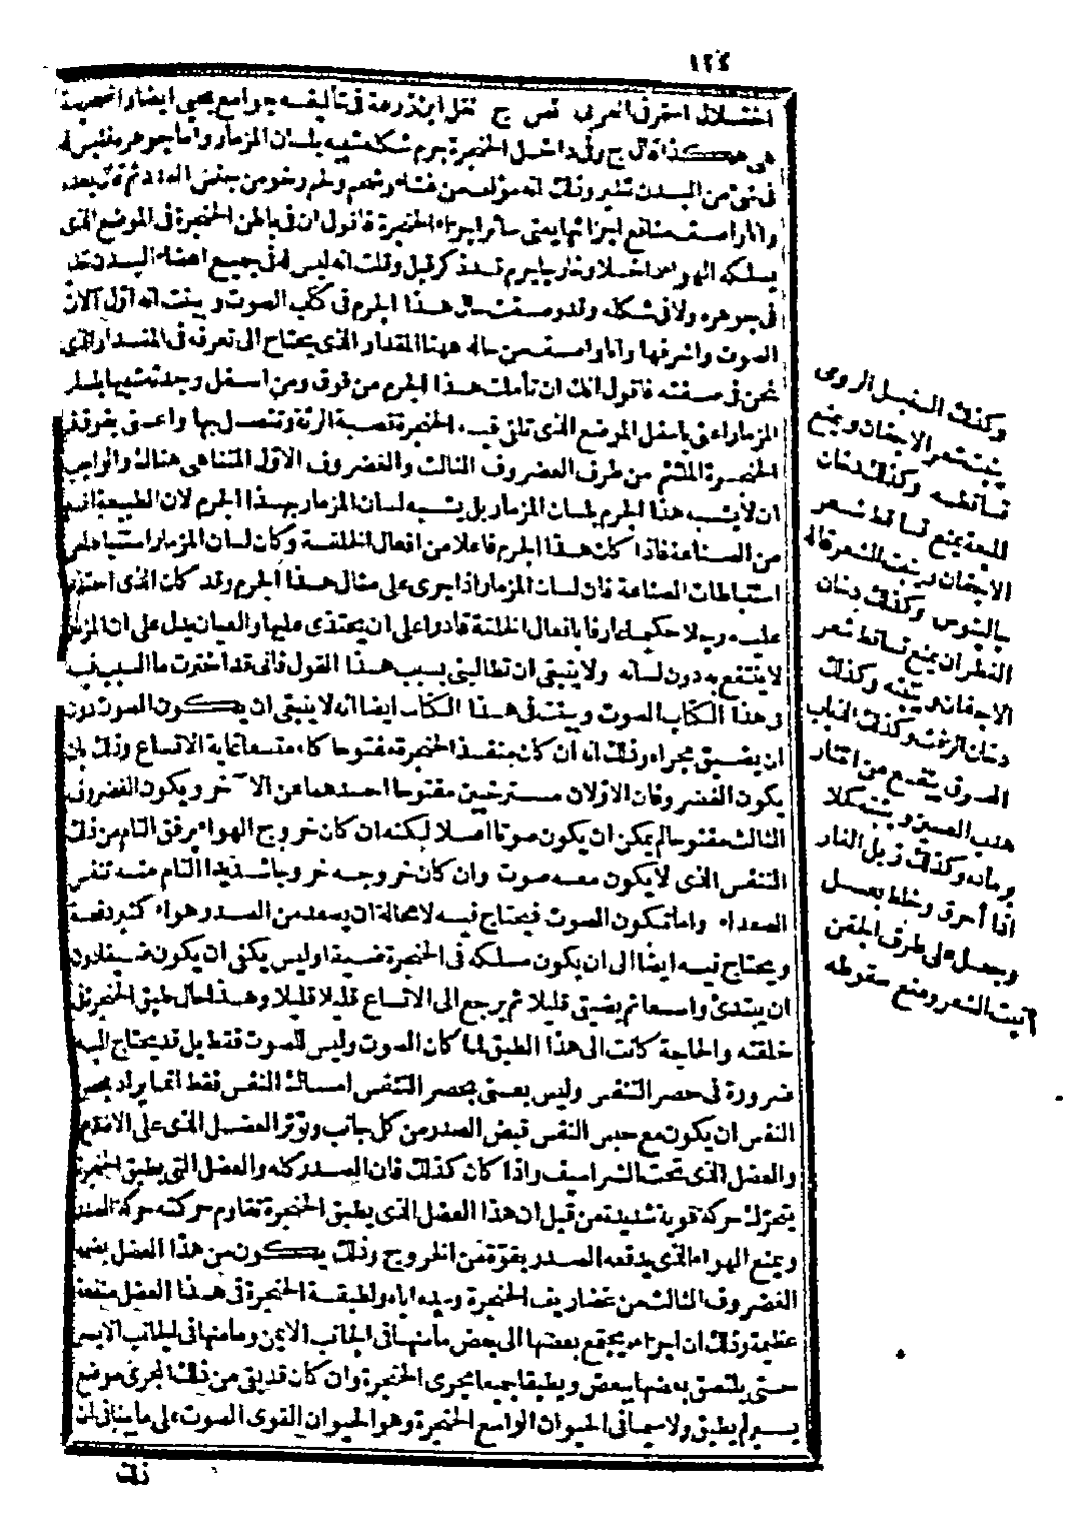 ١٢٤
اختلال احترق العربي نص ج نقل ابن زرعة في تأليفه جوامع يحيى ايضا والحنجرة
هي هكذا قال ج وفي داخل الحنجرة جرم شكله شبيه بلسان المزمار واما جوهره فليس له
في شئ من البدن نظير وذلك انه مؤلف من غشاء وشحم ولحم رخو من جنس الغدد ثم قال بعد
وانا واصف منافع اجزائها يعنى سائر اجزاء الحنجرة فاقول ان في باطن الحنجرة في الموضع الذى
يسلكه الهواء داخلا وخارجا جرم قد ذكر قبل وقلت انه ليس له في جميع اعضاء البدن
في جوهره ولا في شكله وقد وصفت حال هذا الجرم في كتاب الصوت وبينت انه اول آلات
الصوت واشرفها وانا واصف من حاله ههنا المقدار الذى يحتاج الى تعرفه في المقدار الذى
نحن في صفته فاقول انك ان تأملت هذا الجرم من فوق ومن اسفل وجدته شبيها بلسان
المزمار اعنى باسفل الموضع الذى تلقى فيه الحنجرة قصبة الرئة وتتصل بها واعنى بفوق فم
الحنجرة الملتئم من طرف الغضروف الثالث والغضروف الاول المتناهى هناك والواجب
ان لا يشبه هذا الجرم بلسان المزمار بل يشبه لسان المزمار بهذا الجرم لان الطبيعة اقدم
من الصناعة فاذا كان هذا الجرم فاعلا من افعال الخلقة وكان لسان المزمار استنباطا من
استنباطات الصناعة فان لسان المزمار اذا جرى على مثال هذا الجرم وقد كان الذى احتذى
عليه رجلا حكيما عارفا بافعال الخلقة قادرا على ان يحتذى عليها والعيان يدل على ان المزمار
لا ينتفع به دون لسانه ولا ينبغى ان تطالبنى بسبب هذا القول فانى قد أخبرت ما السبب فيه
وهذا الكتاب الصوت وبينت في هذا الكتاب ايضا انه لا ينبغى ان يكون الصوت دون
ان يضيق مجراه وذلك انه ان كان منفذ الحنجرة مفتوحا كله متسعا غاية الاتساع وذلك بان
يكون الغضروفان الاولان مسترخيين مفتوحا احدهما عن الآخر ويكون الغضروف
الثالث مفتوحا لم يمكن ان يكون صوتا اصلا لكنه ان كان خروج الهواء برفق التام من ذلك
التنفس الذى لا يكون معه صوت وان كان خروجه خروجا شديدا التام منه تنفس
الصعداء واما تكون الصوت فيحتاج فيه لا محالة ان يصعد من الصدر هواء كثير دفعة
ويحتاج فيه ايضا الى ان يكون مسلكه في الحنجرة ضيقا وليس يكفى ان يكون ضيقا دون
ان يبتدئ واسعا ثم يضيق قليلا ثم يرجع الى الاتساع قليلا قليلا وهذا حال طبق الحنجرة في
خلقته والحاجة كانت الى هذا الطبق لما كان الصوت وليس للصوت فقط بل قد يحتاج اليه
ضرورة في حصر التنفس وليس يعنى بحصر التنفس امساك النفس فقط انما يراد بحصر
النفس ان يكون مع حبس النفس قبض الصدر من كل جانب وتوتر العضل الذى على الاضلاع
والعضل الذى تحت الشراسيف واذا كان كذلك فان الصدر كله والعضل التى يطبق الحنجرة
يتحرك حركة قوية شديدة من قبل ان هذا العضل الذى يطبق الحنجرة تقاوم حركته حركة الصدر
ويمنع الهواء الذى يدفعه الصدر بقوة من الخروج وذلك يكون من هذا العضل بضمه
الغضروف الثالث من غضاريف الحنجرة ومده اياه ولطبقة الحنجرة في هذا العضل منفعة
عظيمة وذلك ان اجزاءه يجتمع بعضها الى بعض ما منها في الجانب الايمن وما منها في الجانب الايسر
حتى يلتصق بعضها ببعض ويطبقا جميعا مجرى الحنجرة وان كان قد بقى من ذلك المجرى موضع
يسير لم يطبق ولا سيما في الحيوان الواسع الحنجرة وهو الحيوان القوى الصوت على ما بينا في ان
ذلك
وكذلك السنبل الرومى
ينبت شعر الاجفان ويمنع
تساقطه وكذلك دخان
الميعة يمنع تساقط شعر
الاجفان وينبت الشعر قاله
جالينوس وكذلك دخان
القطران يمنع تساقط شعر
الاجفان وينبته وكذلك
دخان الزفت وكذلك الخشب
الصوق ينفع من انتثار
هدب العينين وينبته كلا
ورماده وكذلك زبل الفار
اذا أحرق وخلط بعسل
وجعل على طرف الجفن
أنبت الشعر ومنع سقوطه